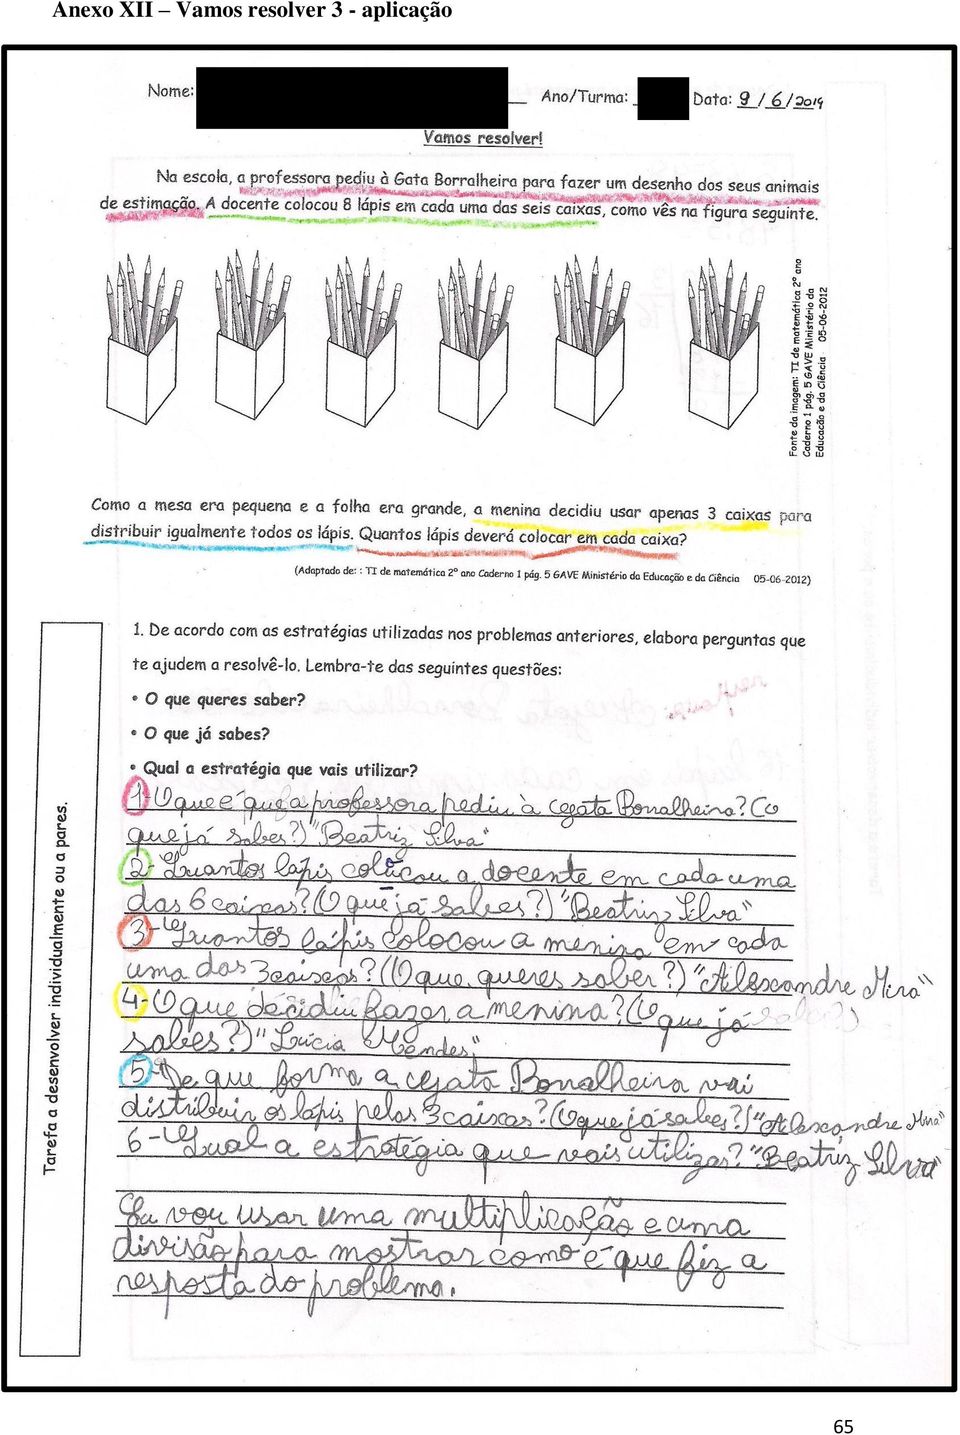 Anexo XII – Vamos resolver 3 - aplicação
Nome:
Ano/Turma:
Data: 9 / 6 / 2014
Vamos resolver!
Na escola, a professora pediu à Gata Borralheira para fazer um desenho dos seus animais
de estimação. A docente colocou 8 lápis em cada uma das seis caixas, como vês na figura seguinte.
Fonte da imagem: TI de matemática 2º ano
Caderno 1 pág. 5 GAVE Ministério da
Educacão e da Ciência 05-06-2012
Como a mesa era pequena e a folha era grande, a menina decidiu usar apenas 3 caixas para
distribuir igualmente todos os lápis. Quantos lápis deverá colocar em cada caixa?
(Adaptado de: : TI de matemática 2º ano Caderno 1 pág. 5 GAVE Ministério da Educação e da Ciência 05-06-2012)
Tarefa a desenvolver individualmente ou a pares.
1. De acordo com as estratégias utilizadas nos problemas anteriores, elabora perguntas que
te ajudem a resolvê-lo. Lembra-te das seguintes questões:
• O que queres saber?
• O que já sabes?
• Qual a estratégia que vais utilizar?
1-O que é que a professora pediu à Gata Borralheira? (O
que já sabes?) "Beatriz Silva"
2-Quantos lápis colocou a docente em cada uma
das 6 caixas? (O que já sabes?) "Beatriz Silva"
3-Quantos lápis colocou a menina em cada
uma das 3 caixas? (O que queres saber?) "Alexandre Mira"
4-O que decidiu fazer a menina? (O que já
sabes?) "Lúcia Mendes"
5-De que forma a Gata Borralheira vai
distribuir os lápis pelas 3 caixas? (O que já sabes?) "Alexandre Mira"
6-Qual a estratégia que vais utilizar? "Beatriz Silva"
Eu vou usar uma multiplicação e uma
divisão para mostrar como é que fiz a
resposta do problema.
65